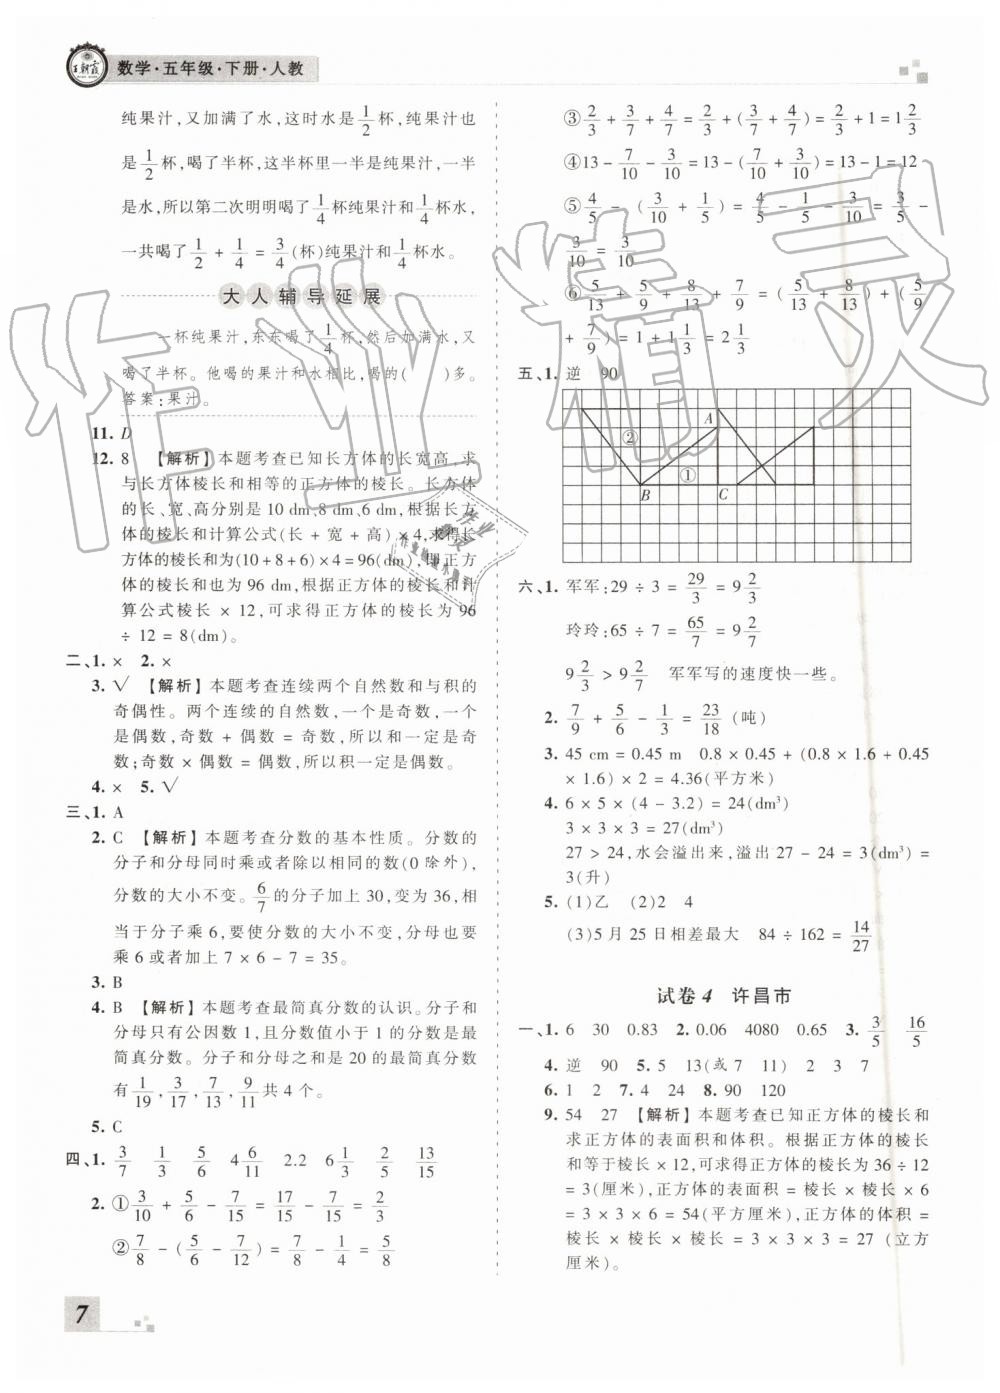 王朝霞
数学·五年级·下册·人教
纯果汁,又加满了水,这时水是1/2杯,纯果汁也
是1/2杯,喝了半杯,这半杯里一半是纯果汁,一半
是水,所以第二次明明喝了1/4杯纯果汁和1/4杯水,
一共喝了1/2+1/4=3/4(杯)纯果汁和1/4杯水。
大人辅导延展
一杯纯果汁,东东喝了1/4杯,然后加满水,又
喝了半杯。他喝的果汁和水相比,喝的( )多。
答案:果汁。
11. D
12. 8 【解析】本题考查已知长方体的长宽高,求
与长方体棱长和相等的正方体的棱长。长方体
的长、宽、高分别是10 dm、8 dm、6 dm,根据长方
体的棱长和计算公式(长+宽+高)×4,求得长
方体的棱长和为(10+8+6)×4=96(dm),即正方
体的棱长和也为96 dm,根据正方体的棱长和计
算公式棱长×12,可求得正方体的棱长为96
÷12=8(dm)。
二、1. × 2. ×
3. √ 【解析】本题考查连续两个自然数和与积的
奇偶性。两个连续的自然数,一个是奇数,一个
是偶数,奇数+偶数=奇数,所以和一定是奇
数;奇数×偶数=偶数,所以积一定是偶数。
4. × 5. √
三、1. A
2. C 【解析】本题考查分数的基本性质。分数的
分子和分母同时乘或者除以相同的数(0除外),
分数的大小不变。6/7的分子加上30,变为36,相
当于分子乘6,要使分数的大小不变,分母也要
乘6或者增加7×6-7=35。
3. B
4. B 【解析】本题考查最简真分数的认识。分子和
分母只有公因数1,且分数值小于1的分数是最
简真分数。分子和分母之和是20的最简真分数
有1/19,3/17,7/13,9/11共4个。
5. C
四、1. 3/7 1/3 5/6 4 6/11 2.2 6 1/3 2/5 13/15
2. ①3/10+5/6-7/15=17/15-7/15=2/3
②7/8-(5/6-7/12)=7/8-1/4=5/8
7
③2/3+3/7+4/7=2/3+(3/7+4/7)=2/3+1=1 2/3
④13-7/10-3/10=13-(7/10+3/10)=13-1=12
⑤4/5-(3/10+1/5)=4/5-1/5-3/10=3/5-
3/10=3/10
⑥5/13+5/9+8/13+7/9=(5/13+8/13)+(5/9
+7/9)=1+1 1/3=2 1/3
五、1. 逆 90
② A
①
B C
六、1. 军军:29÷3=29/3=9 2/3
玲玲:65÷7=65/7=9 2/7
9 2/3>9 2/7 军军写的速度快一些。
2. 7/9+5/6-1/3=23/18(吨)
3. 45 cm=0.45 m 0.8×0.45+(0.8×1.6+0.45
×1.6)×2=4.36(平方米)
4. 6×5×(4-3.2)=24(dm³)
3×3×3=27(dm³)
27>24,水会溢出来,溢出27-24=3(dm³)=
3(升)
5. (1)乙 (2)2 4
(3)5月25日相差最大 84÷162=14/27
试卷4 许昌市
一、1. 6 30 0.83 2. 0.06 4080 0.65 3. 3/5 16/5
4. 逆 90 5. 5 13(或7 11) 2 3 7
6. 1 2 7. 4 24 8. 90 120
9. 54 27 【解析】本题考查已知正方体的棱长和
求正方体的表面积和体积。根据正方体的棱长
和等于棱长×12,可求得正方体的棱长为36÷12
=3(厘米),正方体的表面积=棱长×棱长×6
=3×3×6=54(平方厘米),正方体的体积=
棱长×棱长×棱长=3×3×3=27(立方
厘米)。
作业精灵